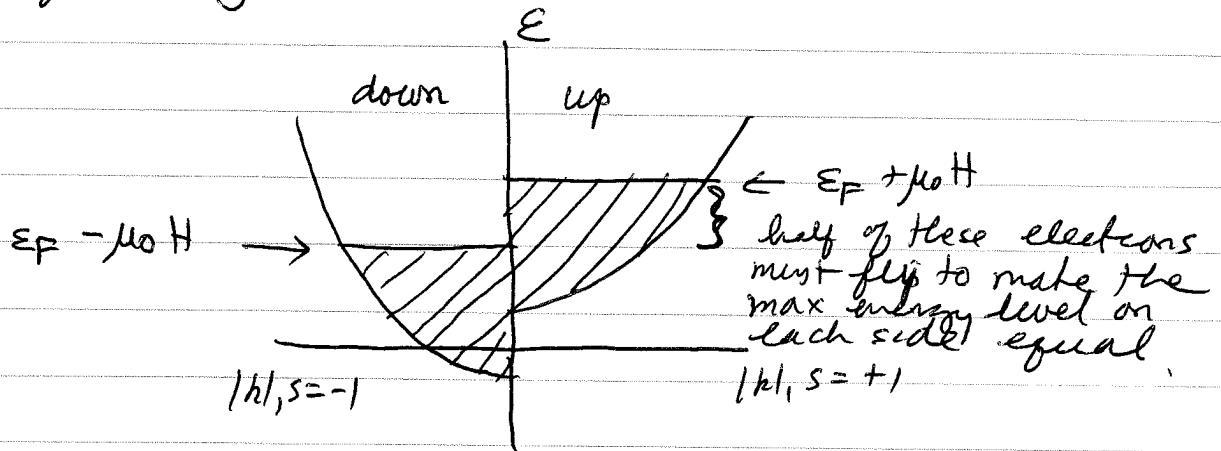 ε
down up
← εF + μ0 H
εF - μ0 H →
half of these electrons
must flip to make the
max energy level on
each side equal.
|k|, s=-1
|k|, s=+1